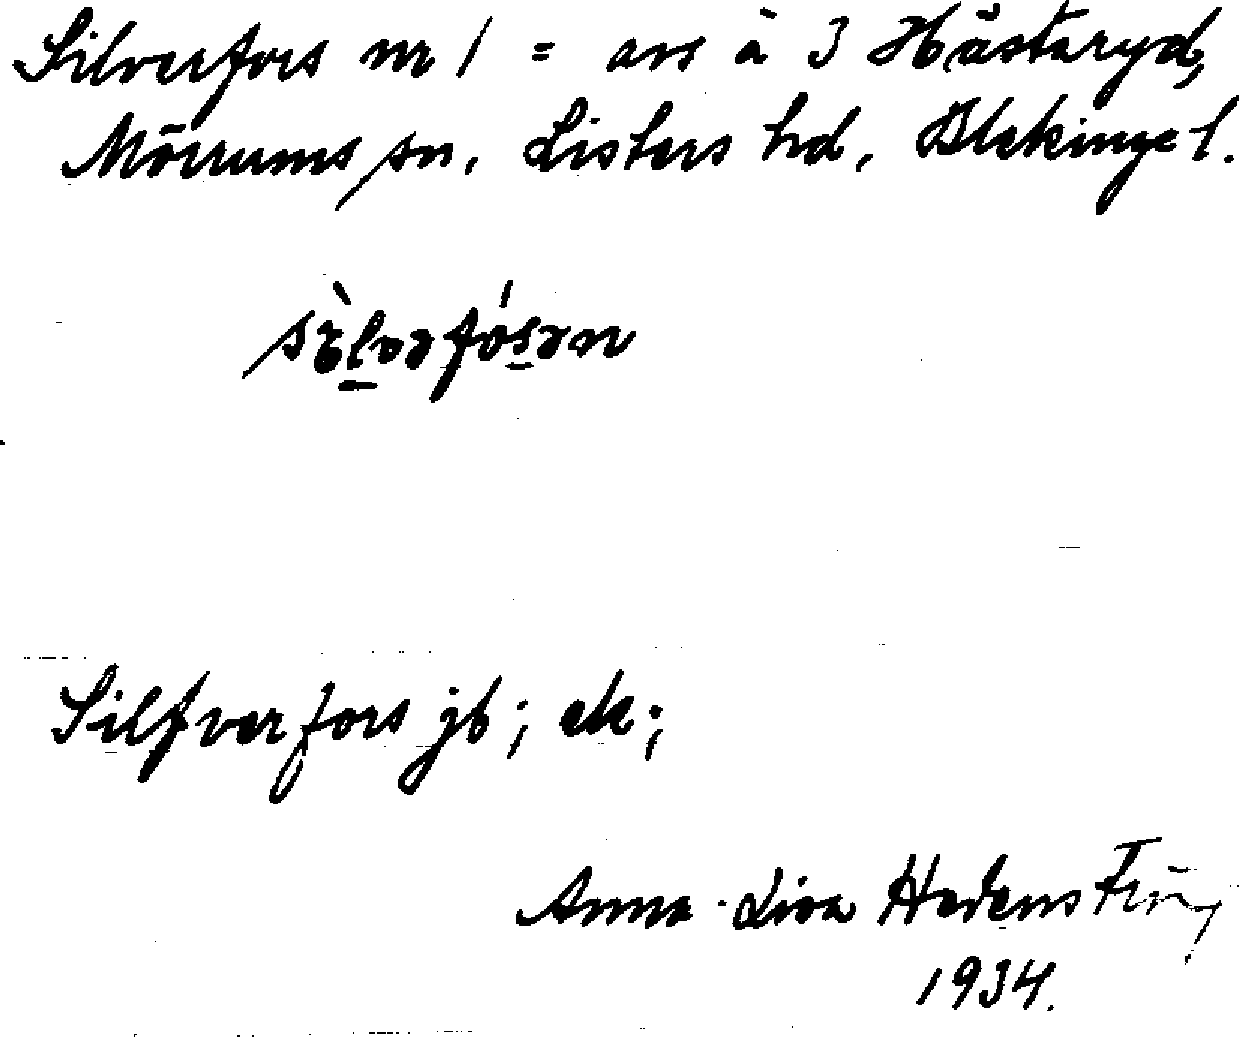 Silverfors nr 1 = avs å 3 Hästaryd,
Mörrums sn, Listers hd, Blekinge l.
Silfverfors jb; ek;
Anna-Lisa
1934.